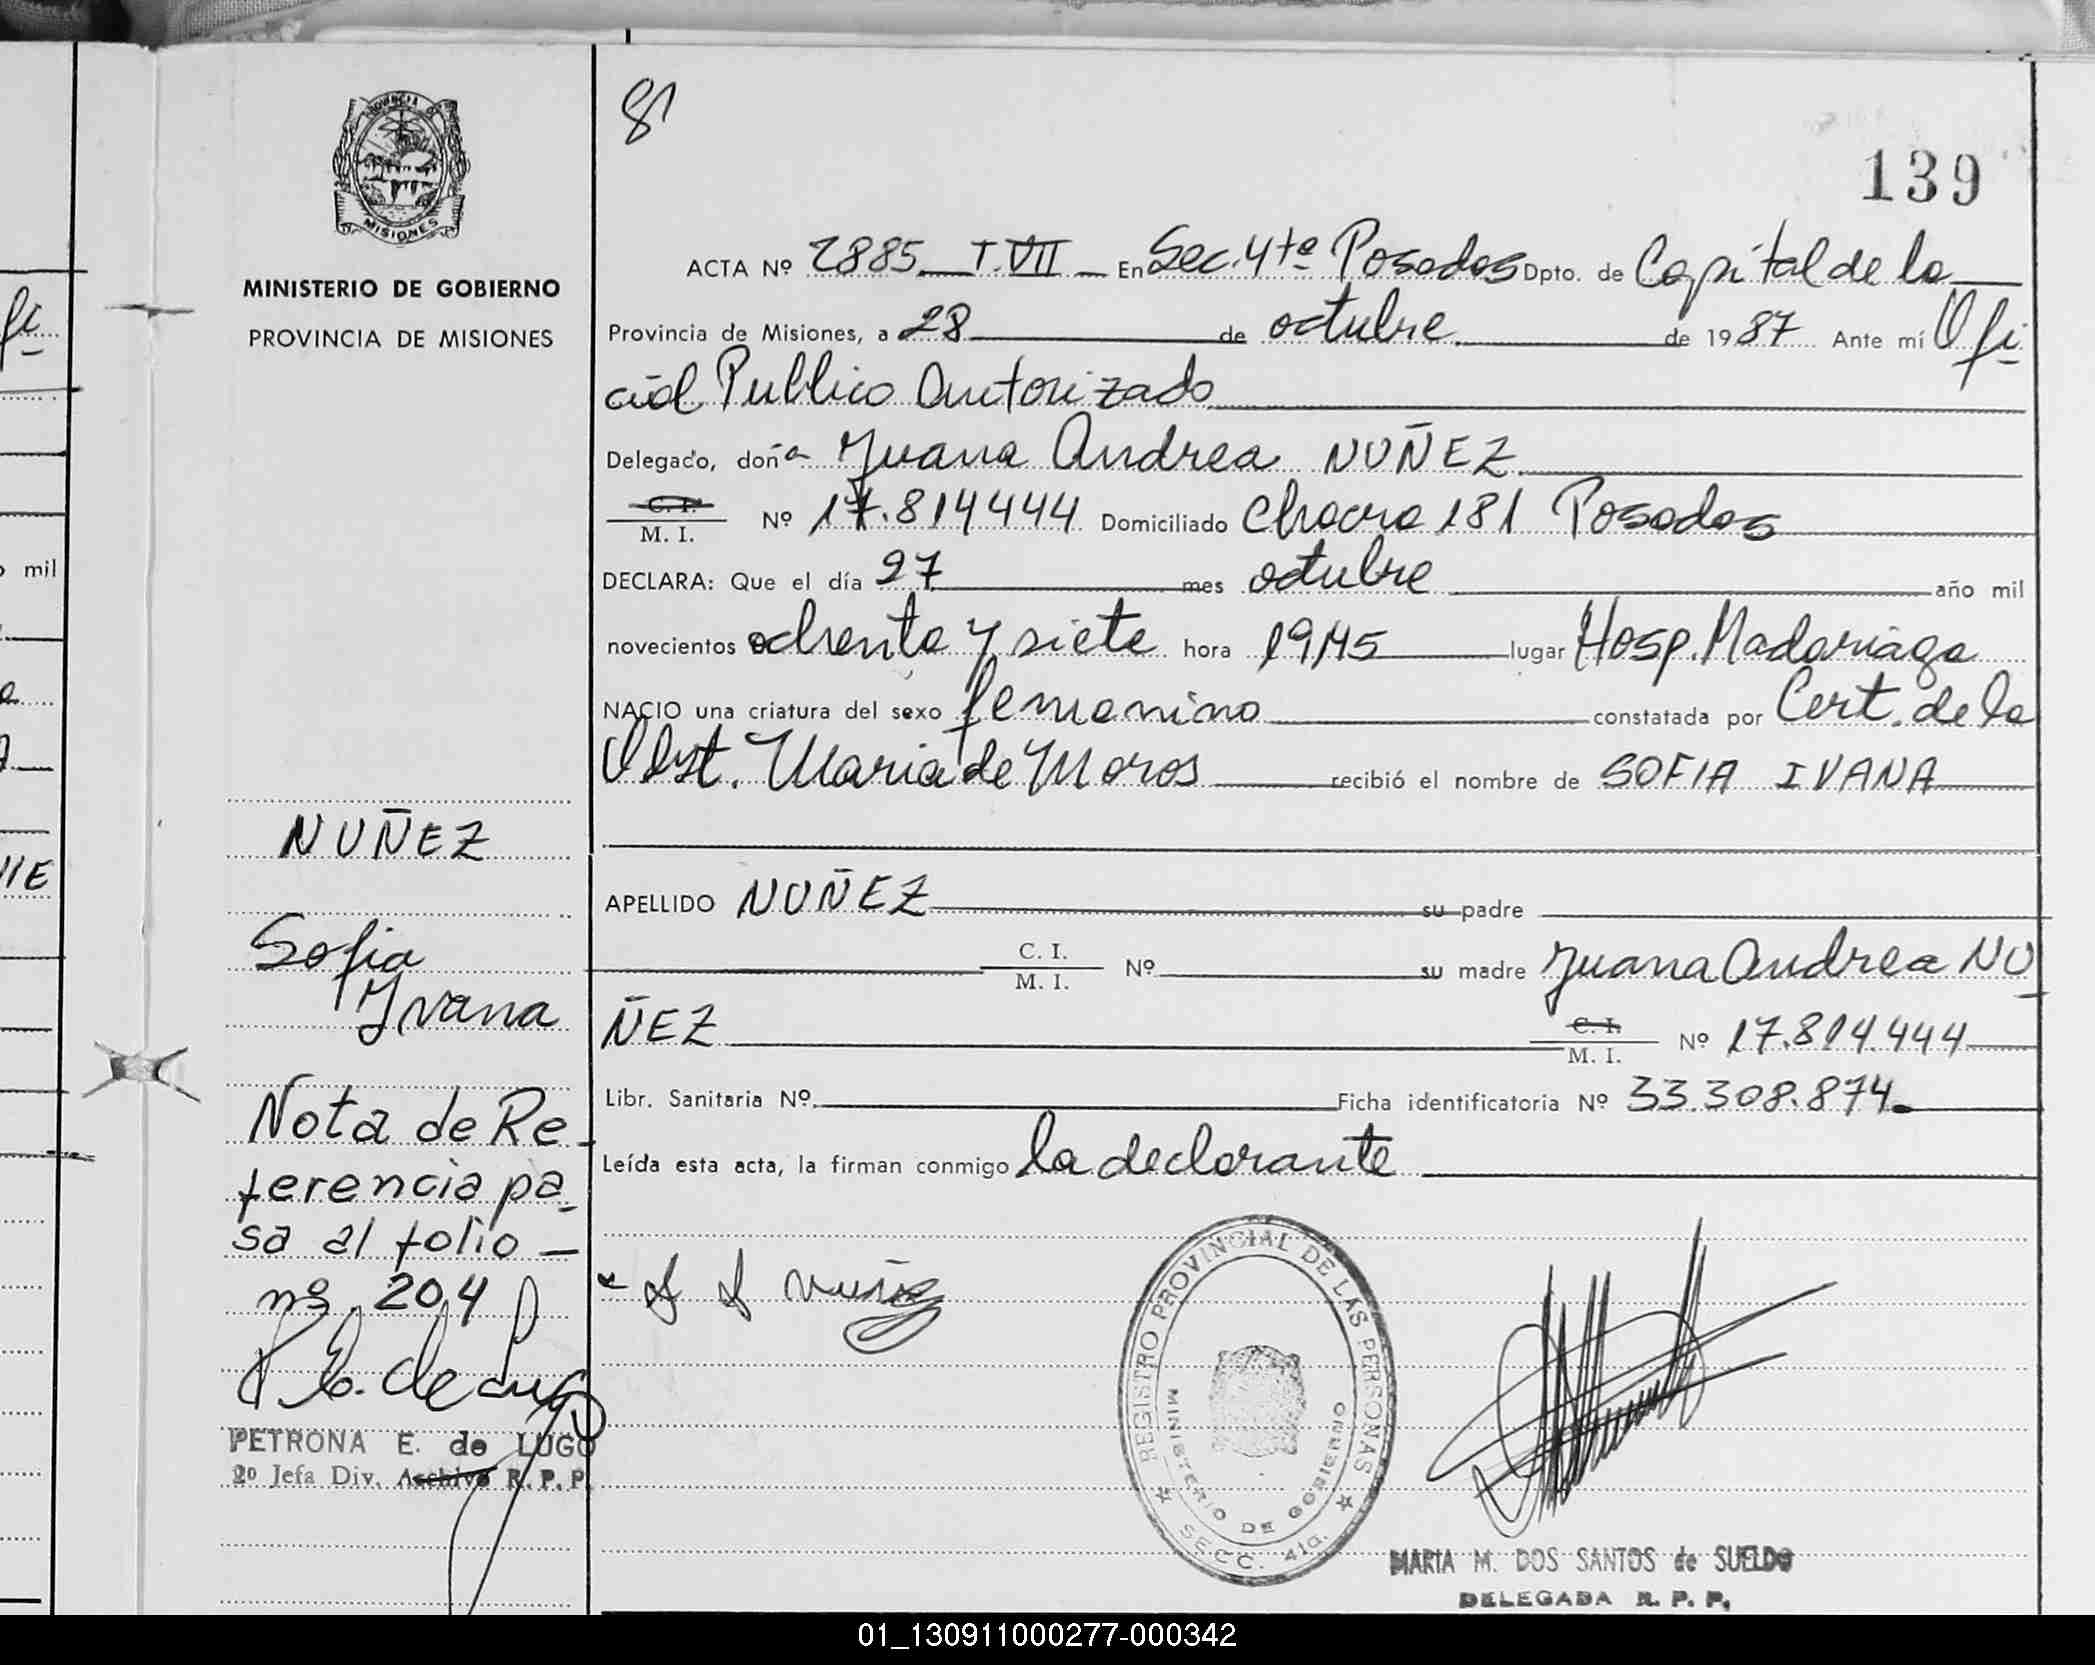 81
139
PROVINCIA DE
MISIONES
MINISTERIO DE GOBIERNO
PROVINCIA DE MISIONES
ACTA Nº 2885 T. VII En Sec. 4ta Posadas Dpto. de Capital de la
Provincia de Misiones, a 28 de octubre de 1987 Ante mí Ofi-
cial Publico Autorizado
Delegado, doña Juana Andrea NUÑEZ
C. I. M. I. Nº 17.814444 Domiciliado Chacra 181 Posadas
DECLARA: Que el día 27 mes octubre año mil
novecientos ochenta y siete hora 19,45 lugar Hosp. Madariaga
NACIO una criatura del sexo femenino constatada por Cert. de la
Obst. Maria de Moros recibió el nombre de SOFIA IVANA
APELLIDO NUÑEZ su padre
C. I. M. I. Nº su madre Juana Andrea NU-
ÑEZ C. I. M. I. Nº 17.814.444
Libr. Sanitaria Nº Ficha identificatoria Nº 33.308.874.
Leída esta acta, la firman conmigo la declarante
NUÑEZ
Sofia
Ivana
Nota de Re-
ferencia pa-
sa al folio
nº 204
P. E. de Lugo
PETRONA E. de LUGO
2º Jefa Div. Archivo R. P. P.
nuñez
REGISTRO PROVINCIAL DE LAS PERSONAS
MINISTERIO DE GOBIERNO
SECC. 4ta.
MARIA M. DOS SANTOS de SUELDO
DELEGADA R. P. P.
mil
01_130911000277-000342